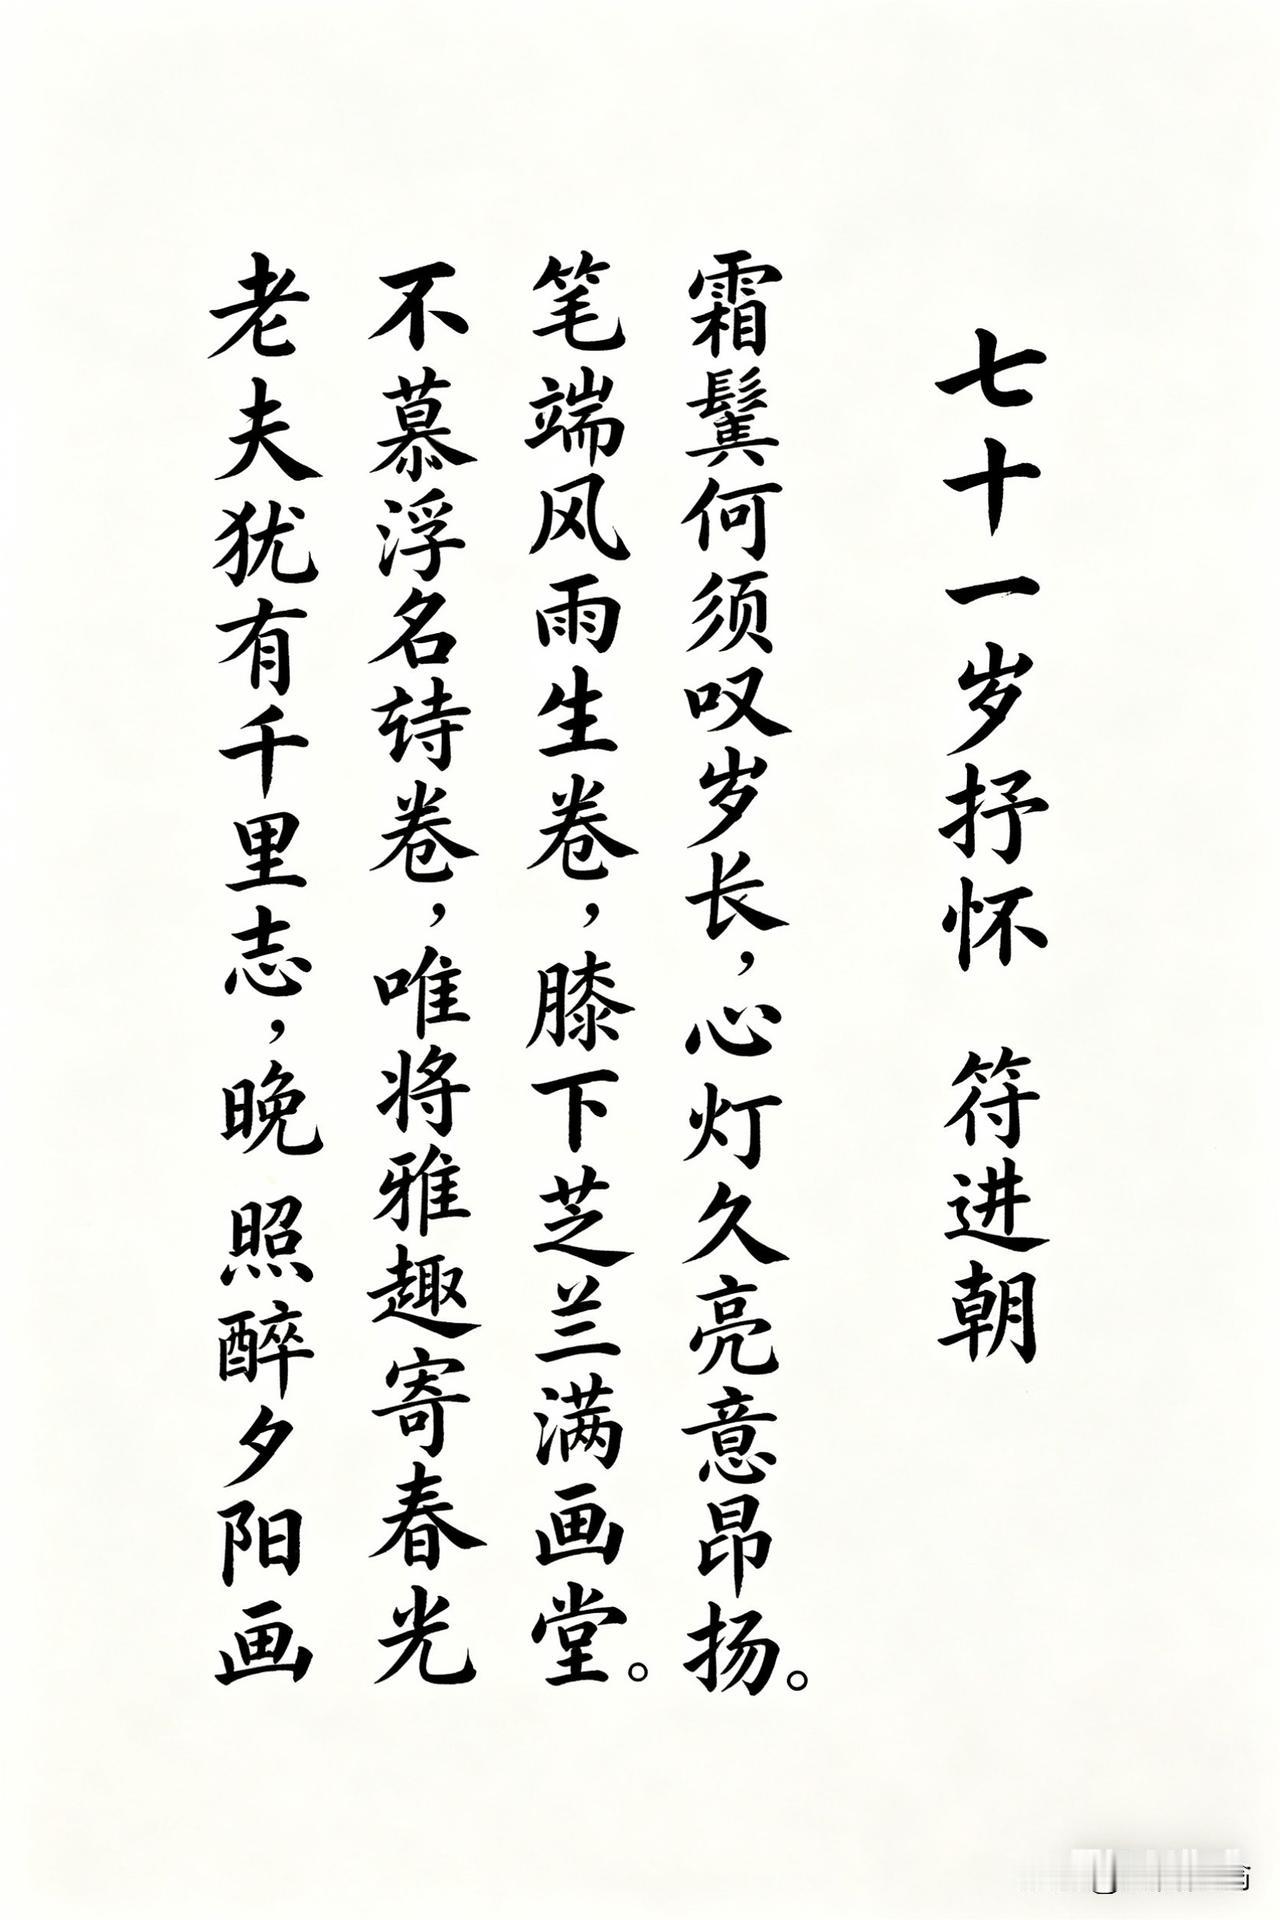 七十一岁抒怀 符进朝
霜鬓何须叹岁长，心灯久亮意昂扬。
笔端风雨生卷，膝下芝兰满画堂。
不慕浮名诗卷，唯将雅趣寄春光
老夫犹有千里志，晚照醉夕阳画